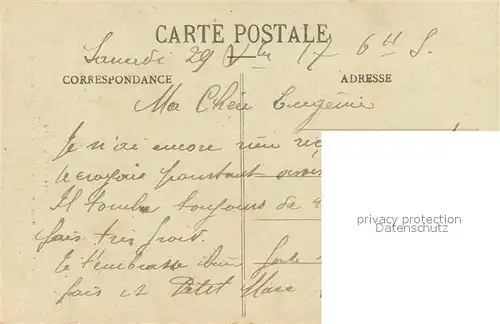 CARTE POSTALE
Samedi 29 Xbre 17 6H S.
CORRESPONDANCE ADRESSE
Ma Chère Eugénie
Je n'ai encore rien
Je croyais pourtant
Il tombe toujours de
fais très froid.
Je t'embrasse bien fort
fais et Petit Marc
privacy protection
Datenschutz